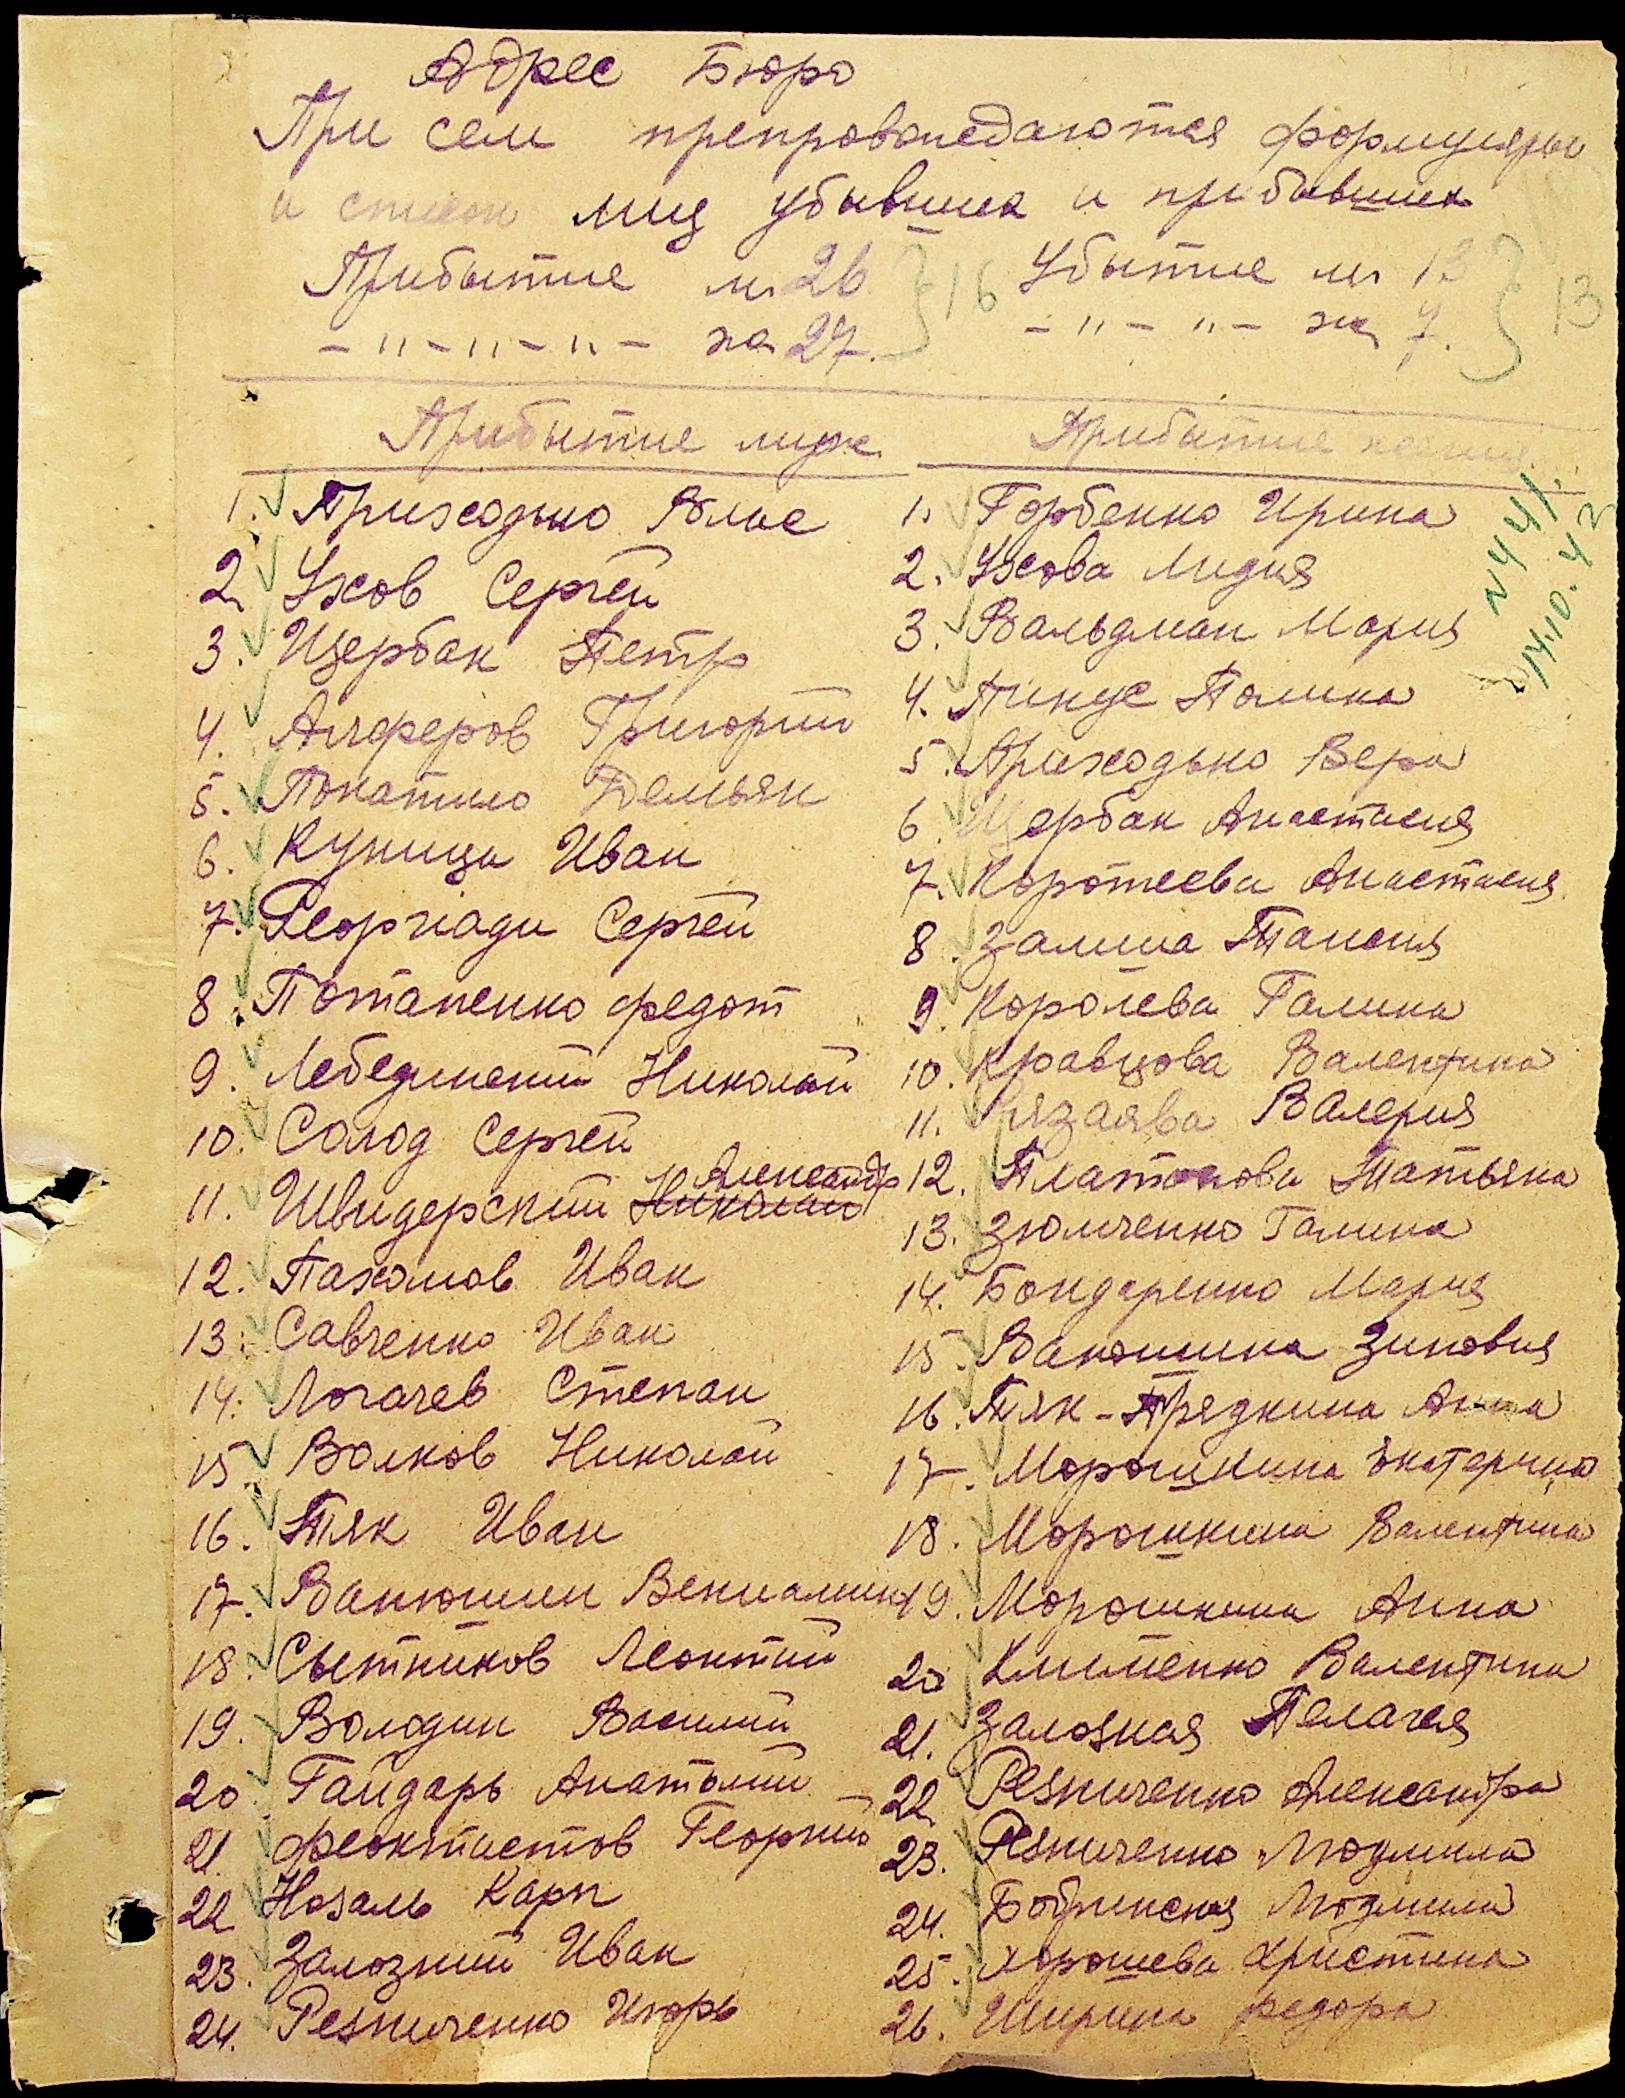 Адрес Бюро
При сем препровождаются формуляры
и список лиц убывших и прибывших
Прибытие м. 26 } 16 Убытие м. 13 } 13
– " – " – " – ж. 27. – " – " – ж. 7.
Прибытие мужс. Прибытие
N 441.
14.10.42
1. Приходько Влас
2. Ухов Сергей
3. Щербак Петр
4. Алферов Григорий
5. Покатило Демьян
6. Куница Иван
7. Георгиади Сергей
8. Потапенко Федот
9. Лебединский Николай
10. Солод Сергей
11. Швидерский Николай Александр
12. Пахомов Иван
13. Савченко Иван
14. Логачев Степан
15. Волков Николай
16. Тяк Иван
17. Ванюшин Вениамин
18. Сытников Леонтий
19. Володин Василий
20. Гайдарь Анатолий
21. Феоктистов Георгий
22. Нозаль Карп
23. Залозний Иван
24. Резниченко Игорь
1. Горбенко Ирина
2. Ухова Лидия
3. Вальдман Мария
4. Пинус Полина
5. Приходько Вера
6. Щербак Анастасия
7. Коротеева Анастасия
8. Таисия
9. Королева Галина
10. Кравцова Валентина
11. Валерия
12. Платонова Татьяна
13. Зюмченко Галина
14. Бондаренко Мария
15. Ванюшина Зиновия
16. Тяк-Прядкина Анна
17. Морошкина Екатерина
18. Морошкина Валентина
19. Морошкина Анна
20. Клименко Валентина
21. Залозная Пелагея
22. Резниченко Александра
23. Резниченко Людмила
24. Бобринская Людмила
25. Хорошева Христина
26. Ширина Федора